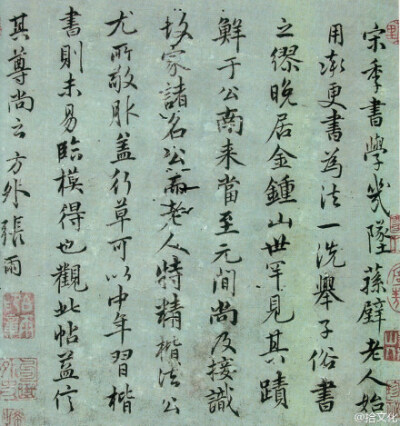 宋季書學幾墜蓀壁老人始
用更書為法一洗舉子俗書
之繆晚居金鍾山世罕見其蹟
鮮于公南来當至元間尚及接識
故家諸名公而老人特精楷法公
尤所敬服盖行草可以中年習楷
書則未易臨模得也觀此帖益信
其尊尚云 方外張雨
@拾文化